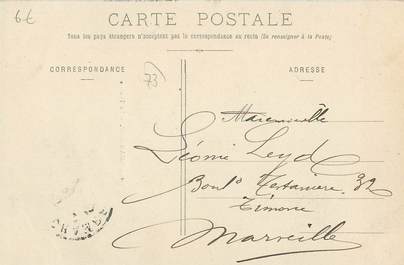 6€
CARTE POSTALE
Tous les pays étrangers n'acceptent pas la correspondance au recto (Se renseigner à la Poste)
CORRESPONDANCE
ADRESSE
73)
Mademoiselle
Léonie Leyd
Boulᵈ 32
Marseille